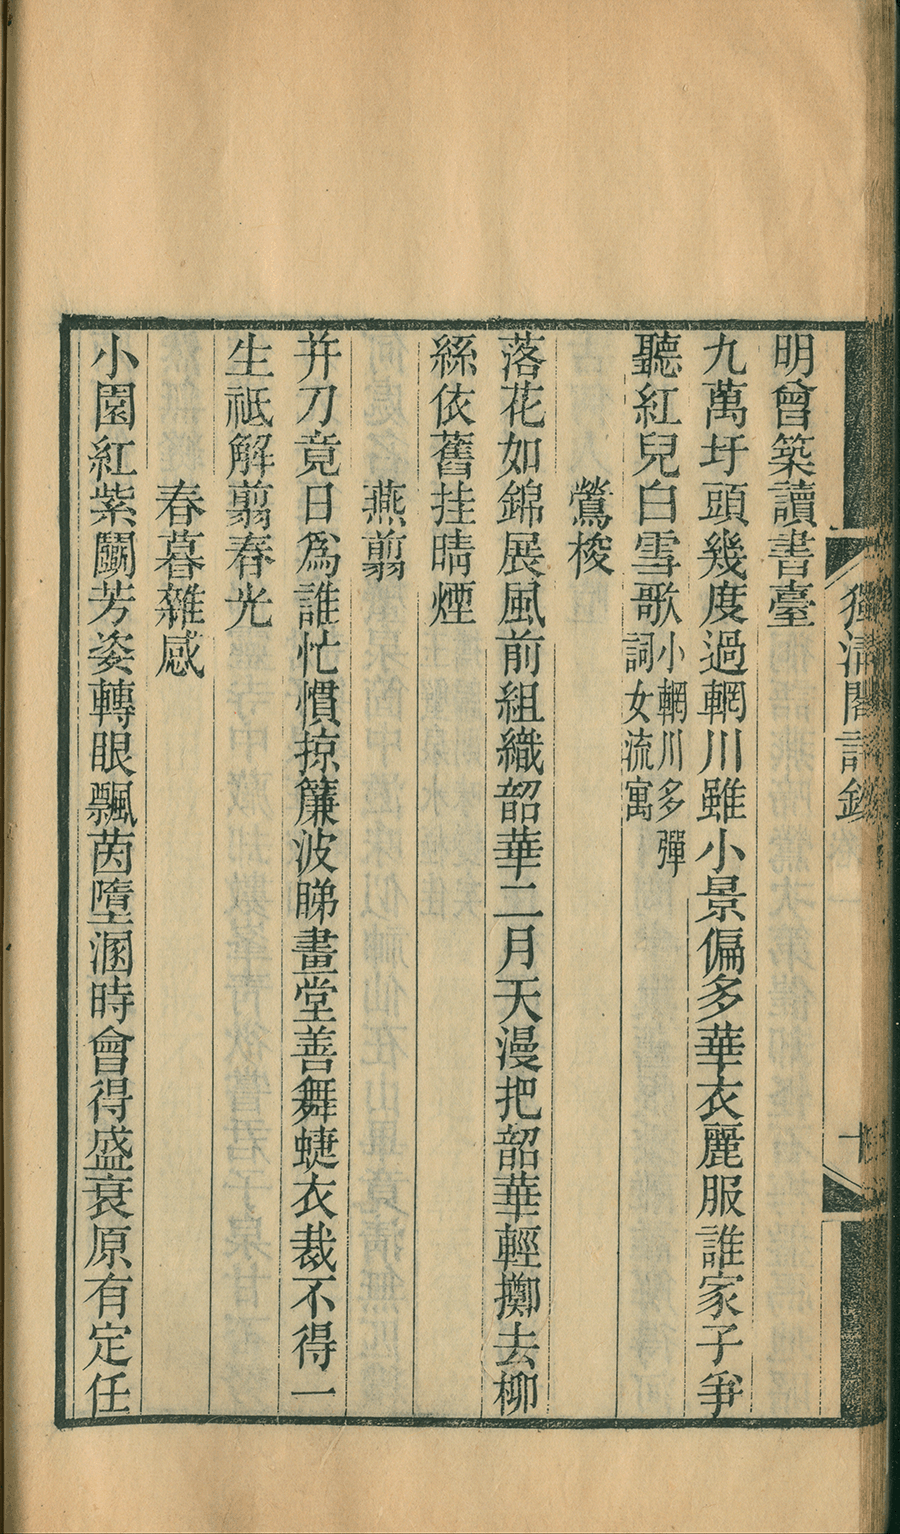 明曾築讀書臺
九萬圩頭幾度過輞川雖小景偏多華衣麗服誰家子爭
聽紅兒白雪歌小輞川多彈
詞女流寓
鶯梭
落花如錦展風前組織韶華二月天漫把韶華輕擲去柳
絲依舊挂晴煙
燕翦
并刀竟日爲誰忙慣掠簾波睇畫堂善舞蜨衣裁不得一
生祗解翦春光
春暮雜感
小園紅紫鬭芳姿轉眼飄茵墮溷時會得盛衰原有定任
獨清閣詩鈔
十